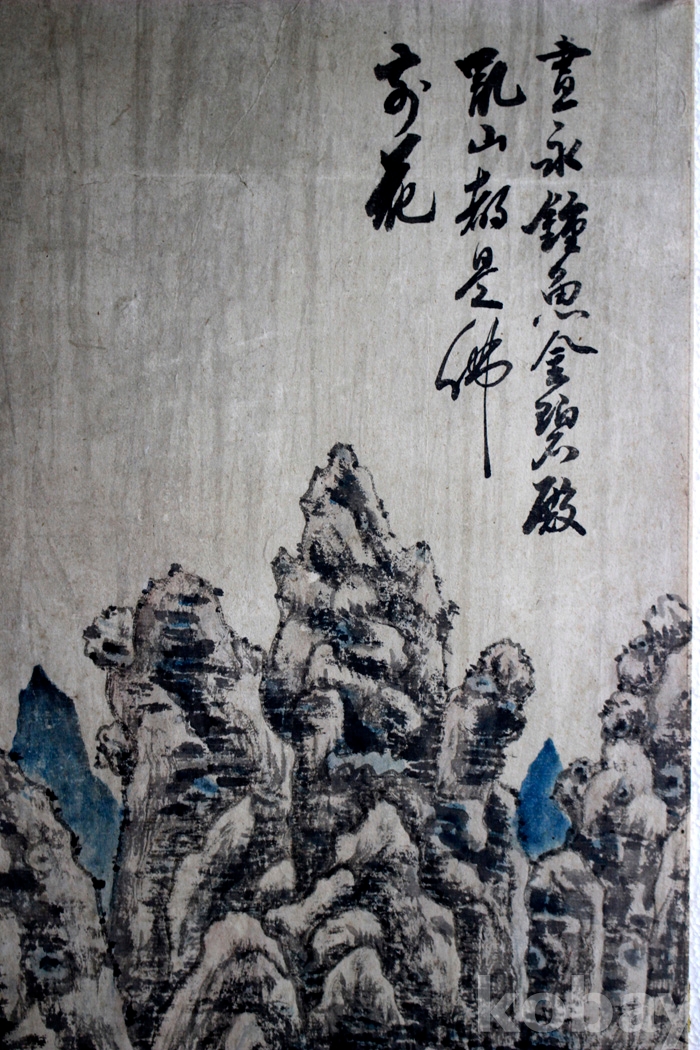 晝永鐘魚金碧殿
亂山都是佛
前花
kobay